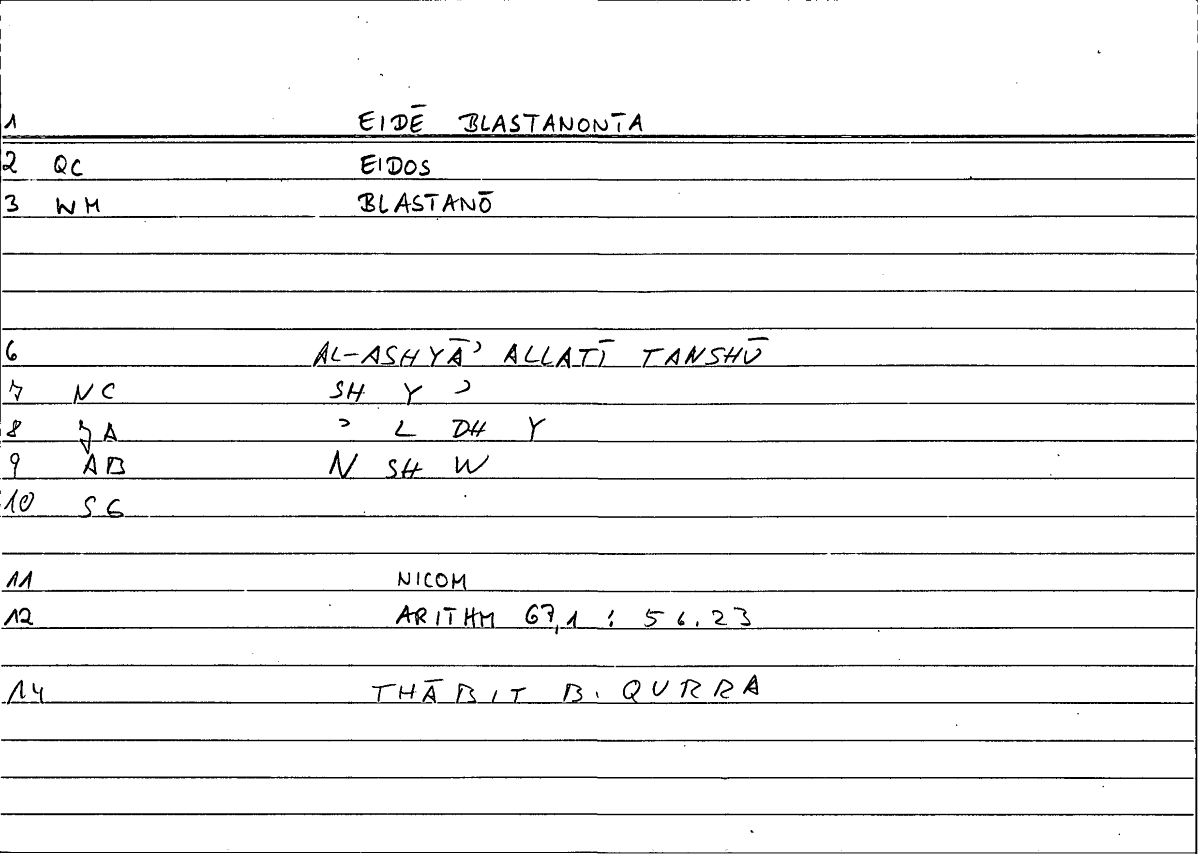 1 EIDĒ BLASTANONTA
2 QC EIDOS
3 WM BLASTANŌ
6 AL-ASHYĀʾ ALLATĪ TANSHŪ
7 NC SH Y ʾ
8 JA ʾ L DH Y
9 AB N SH W
10 SG
11 NICOM
12 ARITHM 67,1 : 56.23
14 THĀBIT B. QURRA